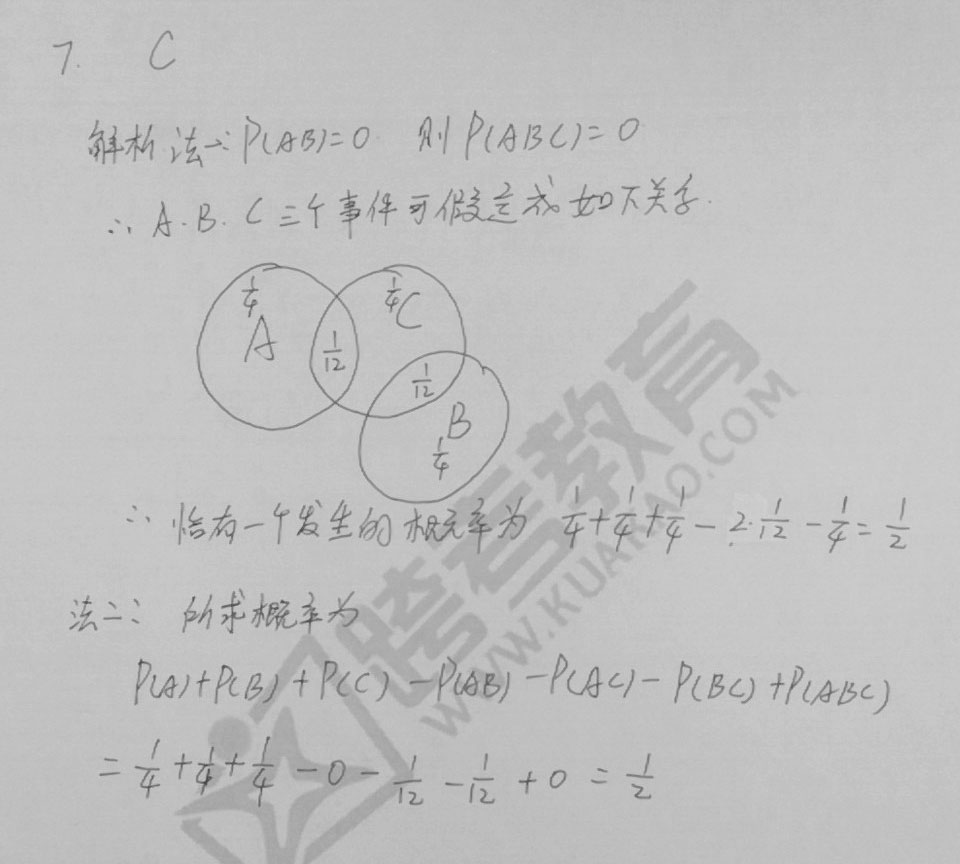 7. C
解析 法一: P(AB)=0 则 P(ABC)=0
∴ A.B.C 三个事件可假定成如下关系.
1/4 1/4
A C
1/12
1/12
B
1/4
∴ 恰有一个发生的概率为 1/4+1/4+1/4-2·1/12-1/4=1/2
法二: 所求概率为
P(A)+P(B)+P(C)-P(AB)-P(AC)-P(BC)+P(ABC)
=1/4+1/4+1/4-0-1/12-1/12+0=1/2
跨考教育
WWW.KUAKAO.COM